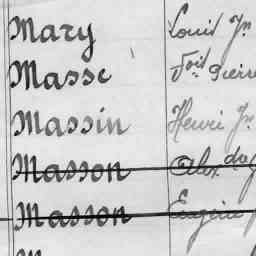 Mary Louis Jn
Masse Jois Pierre
Massin Henri Jn
Masson Alex
Masson Eugène